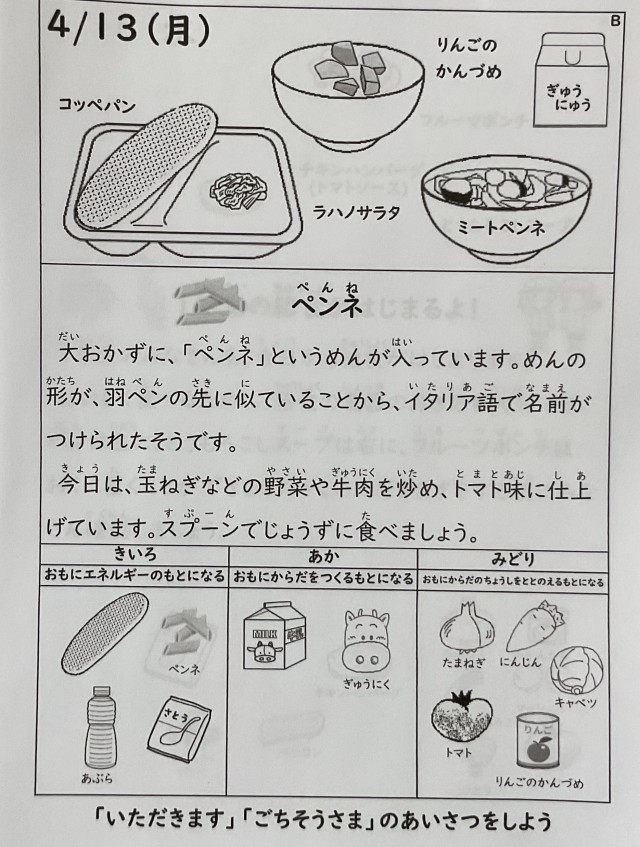 4/13(月)
B
りんごの
かんづめ
ぎゅう
にゅう
コッペパン
ラハノサラタ
ミートペンネ
ぺんね
ペンネ
だい ぺんね はい
大おかずに、「ペンネ」というめんが入っています。めんの
かたち はねぺん さき に いたりあご なまえ
形が、羽ペンの先に似ていることから、イタリア語で名前が
つけられたそうです。
きょう たま やさい ぎゅうにく いた とまとあじ しあ
今日は、玉ねぎなどの野菜や牛肉を炒め、トマト味に仕上
すぷーん た
げています。スプーンでじょうずに食べましょう。
きいろ
おもにエネルギーのもとになる
あか
おもにからだをつくるもとになる
みどり
おもにからだのちょうしをととのえるもとになる
ペンネ
あぶら
さとう
MILK
ぎゅうにく
たまねぎ
にんじん
キャベツ
トマト
りんご
りんごのかんづめ
「いただきます」「ごちそうさま」のあいさつをしよう